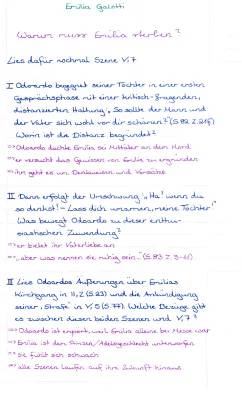 Emilia Galotti
Warum muss Emilia sterben?
Lies dafür nochmal Szene V,7
I Odoardo begegnet seiner Tochter in einer ersten
Gesprächsphase mit einer kritisch-fragenden,
distanzierten Haltung, „So sollte der Mann und
der Vater sich wohl vor dir schämen?" (S.82 Z.25f)
Worin ist die Distanz begründet?
⇒ Odoardo dachte Emilia sei Mittäter an dem Mord
⇒ er versucht das Gewissen von Emilia zu ergründen
⇒ ihn geht es um Denkweisen und Vorsätze
II Dann erfolgt der Umschwung „Ha! wenn du
so denkst! - Lass dich umarmen, meine Tochter!"
Was bewegt Odoardo zu dieser enthu-
siastischen Zuwendung?
⇒ er bietet ihr Vaterliebe an
⇒ „aber was nennen sie ruhig sein..." (S.83 Z.3-11)
III Lies Odoardos Äußerungen über Emilias
Kirchgang in II,2 (S.23) und die Ankündigung
seiner „Strafe" in V,5 (S.77). Welche Bezüge gibt
es zwischen diesen beiden Szenen und V,7?
⇒ Odoardo ist empört, weil Emilia alleine bei Messe war
⇒ Emilia ist den Prinzen/Adelsgeschlecht unterworfen
⇒ sie fühlt sich schwach
⇒ alle Szenen laufen auf ihre Zukunft hinaus